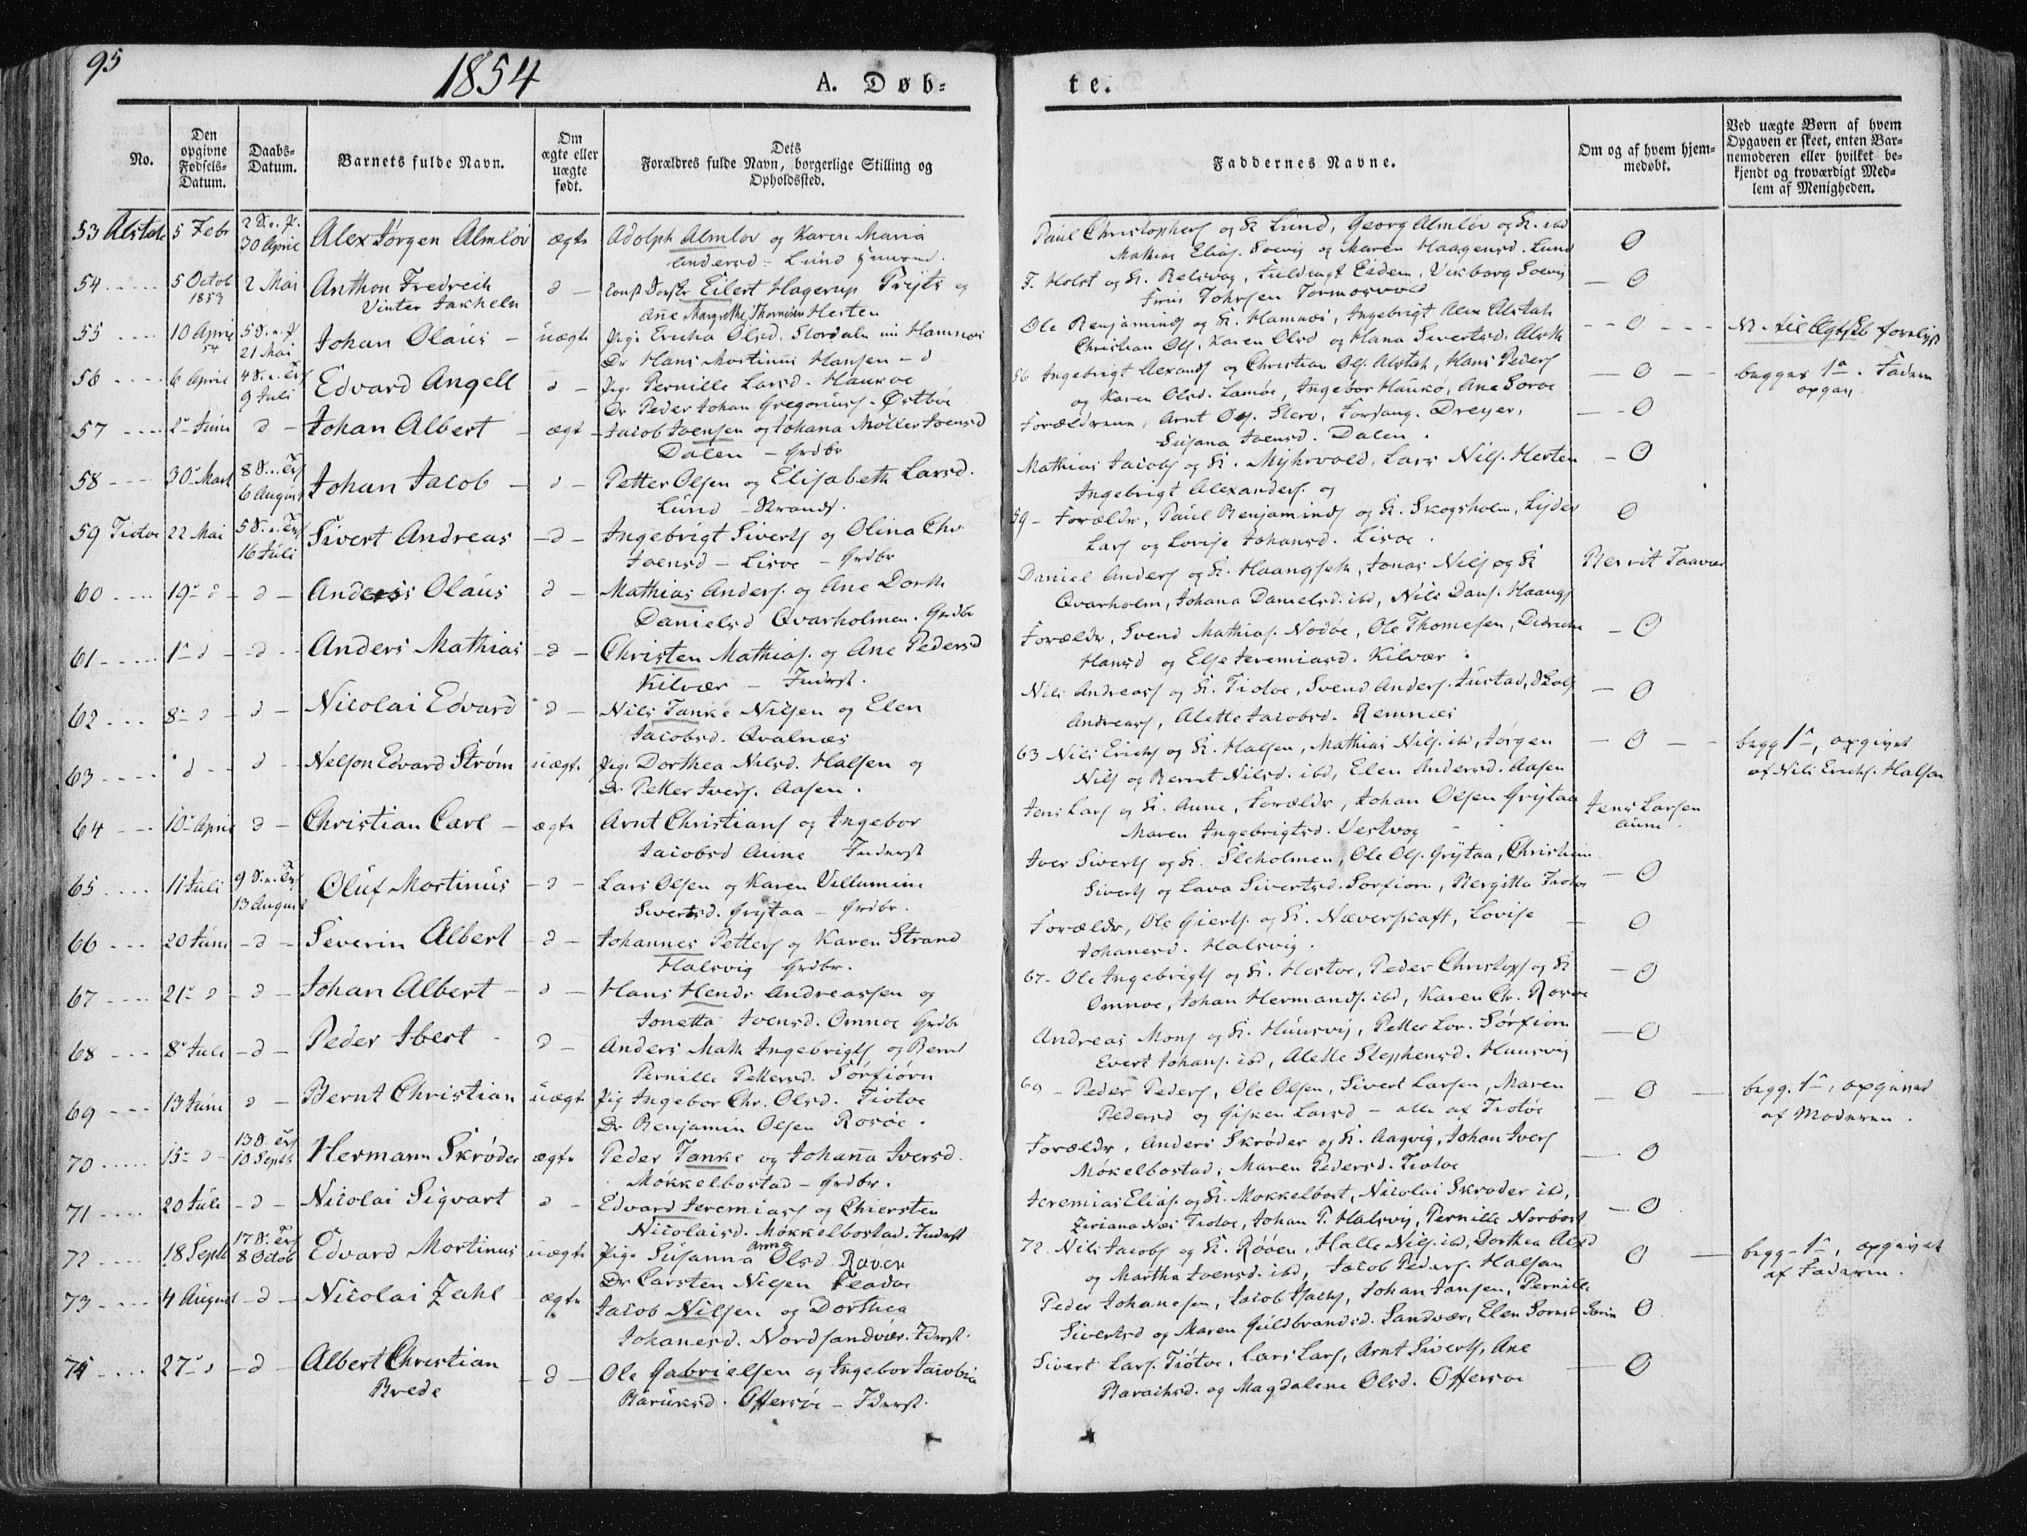 95
1854
A. Døb-
te.
No.
Den opgivne Fødsels-Datum.
Daabs-Datum.
Barnets fulde Navn.
Om ægte eller uægte født.
Dets Forældres fulde Navn, borgerlige Stilling og Opholdssted.
Faddernes Navne.
Om og af hvem hjem-medøbt.
Ved uægte Børn af hvem Opgaven er skeet, enten Bar-nemoderen eller hvilket be-kjendt og troværdigt Med-lem af Menigheden.
53 Alstah 5 Febr 30 April Alex Jørgen Almlov ægte Adolph Almlov og Karen Maria
Andersd - Lund
Paul Christophers og K Lund, Georg Almlov og K. ibd
Mathias Elias. Soevig og Maren Haagensd. Lund 0
54 5 Octob 1853 2 Mai Anthon Fredrich
Vinter Jakheln
Eilert Hagerup Prytz og
Ane Margrethe Thomesen Hesten
F. Holst og K. Belsvag, Eidem, Vikborg Soevig
Tormosvold 0
55 10 April 54 21 Mai Johan Olaus uægte Pige Ericka Olsd. Stordaln Hamnøi
Dr Hans Mortinus Hansen
Ole Benjamins og K. Hamnøi, Ingebrigt Alex Alstah
Christian Ols. Karen Olsd og Hana Sivertsd. Alsth 0
56 6 April 9 Juli Edvard Angell Pig. Pernille Larsd. Haukøe
Dr Peder Johan Gregorius. Østbø
56 Ingebrigt Alexands og Christian Ols. Alstah, Hans Peders
og Karen Olsd. Lamøe, Ingebor Haukø, Ane Sorøe 0 begges 1a. Faderen
opgav
57 2 Juni Johan Albert ægte Jacob Joensen og Johana Møller Joensd
Dalen - Grdbr
Forældrene, Arnt Ols. Forsang. Dreyer,
Susana Joensd. Dalen. 0
58 30 Mart 6 August Johan Jacob Petter Olsen og Elisabeth Larsd.
Lund - Strands.
Mathias Jacobs og K. Myhrvold, Lars Nils. Hesten
Ingebrigt Alexanders. og 0
59 Tiotøe 22 Mai 16 Juli Sivert Andreas Ingebrigt Siverts og Olina Chr.
Joensd - Lisøe - Grdbr
59 - Forældr, Paul Benjamins og K. Skogsholm, Lyder
Lars og Lovise Johansd. Lisøe. 0
60 19 Anders Olaus Mathias Anders. og Ane Dorth
Danielsd Qvarholmen. Grdbr
Daniel Anders og K. Haangseth, Jonas Nils og K
Qvarholm, Johana Danielsd. ibd, Nils Dans. Haangs Bernt Taavær
61 1 Anders Mathias Christen Mathias. og Ane Pedersd
Kilvær - Inderst.
Forældr, Svend Mathias. Nodøe, Ole Thomesen, Didricke
Hansd og Else Jeremiasd. Kilvær. 0
62 8 Nicolai Edvard Nils Tanke Nilsen og Elen
Jacobsd. Qvalnæs
Nils Andreas og K. Tiotøe, Svend Anders. Justad,
Andreas, Alette Jacobsd. Remnæs 0
63 Nelson Edvard Strøm uægte Pige Dorthea Nilsd. Halsen og
Dr Petter Ivers. Aasen.
63 Nils Erichs og K. Halsen, Mathias Nils. ibd, Jørgen
Nils og Bernt Nilsd. ibd, Elen Andersd. Aasen 0 begg 1, opgivet
af Nils Erichs. Halsen
64 10 April Christian Carl ægte Arnt Christians og Ingebor
Jacobsd Aune Inderst
Jens Lars og K. Aune, Forældr, Johan Olsen Grytaa
Maren Ingebrigtsd. Vestvog Jens Larsen
Aune.
65 11 Juli 13 August Oluf Mortinus Lars Olsen og Karen Villumine
Sivertsd. Grytaa - Grdbr.
Iver Siverts og K. Sleholmen, Ole Ols. Grytaa, Christian
Siverts og Lava Sivertsd. Sorfiorn, Bergitta Tiotøe 0
66 20 Juni Severin Albert Johannes Petters og Karen Strand
Halsvig Grdbr.
Forældr, Ole Gierts. og K. Næverskaft, Lovise
Johanesd. Halsvig. 0
67 21 Johan Albert Hans Hendr Andreassen og
Jonetta Joensd. Omnøe Grdbr
67 - Ole Ingebrigts og K. Hestøe, Peder Christoph og K
Omnøe, Johan Hermands. ibd, Karen Chr. Rosøe 0
68 8 Juli Peder Ibert Anders Math Ingebrigts og Bernt
Pernille Pettersd. Sorfiorn
Andreas Mons og K. Huusvig, Petter Lor. Sorfiorn
Evert Johans. ibd, Alette Stephensd. Huusvig 0
69 13 Juni Bernt Christian uægte Pig Ingebor Chr. Olsd. Tiotøe
Dr Benjamin Olsen Rosøe.
69 - Peder Peders, Ole Olsen, Sivert Larsen, Maren
Pedersd og Gisken Larsd - alle af Tiotøe 0 begg. 1, opgivet
af Moderen.
70 15 10 Septb Hermann Skrøder ægte Peder Tanke og Johanna Iversd.
Møkkelbostad - Grdbr.
Forældr, Anders Skrøder og K. Aagvig, Johan Ivers
Møkelbostad, Maren Pedersd. Tiotøe 0
71 20 Juli Nicolai Sigvart Edvard Jeremias og Chiersten
Nicolaisd. Møkkelbostad. Inderst
Jeremias Elias. og K. Mokkelbost, Nicolai Skrøder ibd,
Ziriana Næs Tiotøe, Johan P. Halsvig, Pernille Norbost 0
72 18 Septb 8 Octob Edvard Mortinus uægte Pige Susanna Anna Olsd Røven
Dr Carsten Nilsen Fladøe
72. Nils Jacobs og K. Røøen, Halle Nils. ibd, Dorthea Alexd
og Martha Joensd. ibd, Jacob Peders. Halsen 0 begg 1, opgivet
af Faderen.
73 4 August Nicolai Zahl ægte Jacob Nilsen og Dorthea
Johanesd. Nordsandvær. Inderst.
Peder Johanesen, Jacob Isachs, Johan Jansen, Pernille
Sivertsd og Maren Guldbrandsd. Sandvær, Elen Sørensd 0
74 27 Albert Christian
Brede
Ole Gabrielsen og Ingebor Jacobia
Baruksd. Offersøe - Inderst.
Sivert Lars. Tiotøe, Lars Lars, Arnt Siverts, Ane
Barachsd. og Magdalene Olsd. Offersøe 0